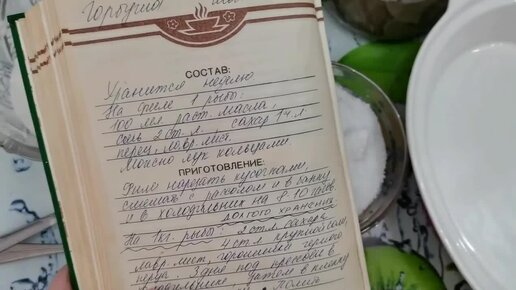 Горбуша
СОСТАВ:
Хранится неделю.
На филе 1 рыбы:
100 мл раст. масла,
соль 2 ст. л. сахар 1 ч л
перец, лавр. лист.
Можно лук кольцами.
ПРИГОТОВЛЕНИЕ:
Филе нарезать кусочками,
смешать с рассолом и в банку
и в холодильник на 8-10 часов.
долгого хранения
На 1кг. рыбы: 2 ст.л. сахара
4 ст л крупной соли,
лавр. лист, горошины горького
перца. 3 дня под прессом в
холодильнике. Затем в пленку